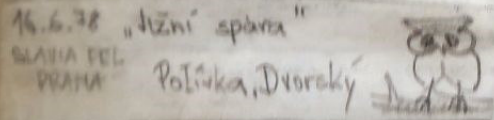 16.6.78 „Jižní spára"
SLAVIA FEL
PRAHA
Polívka, Dvorský